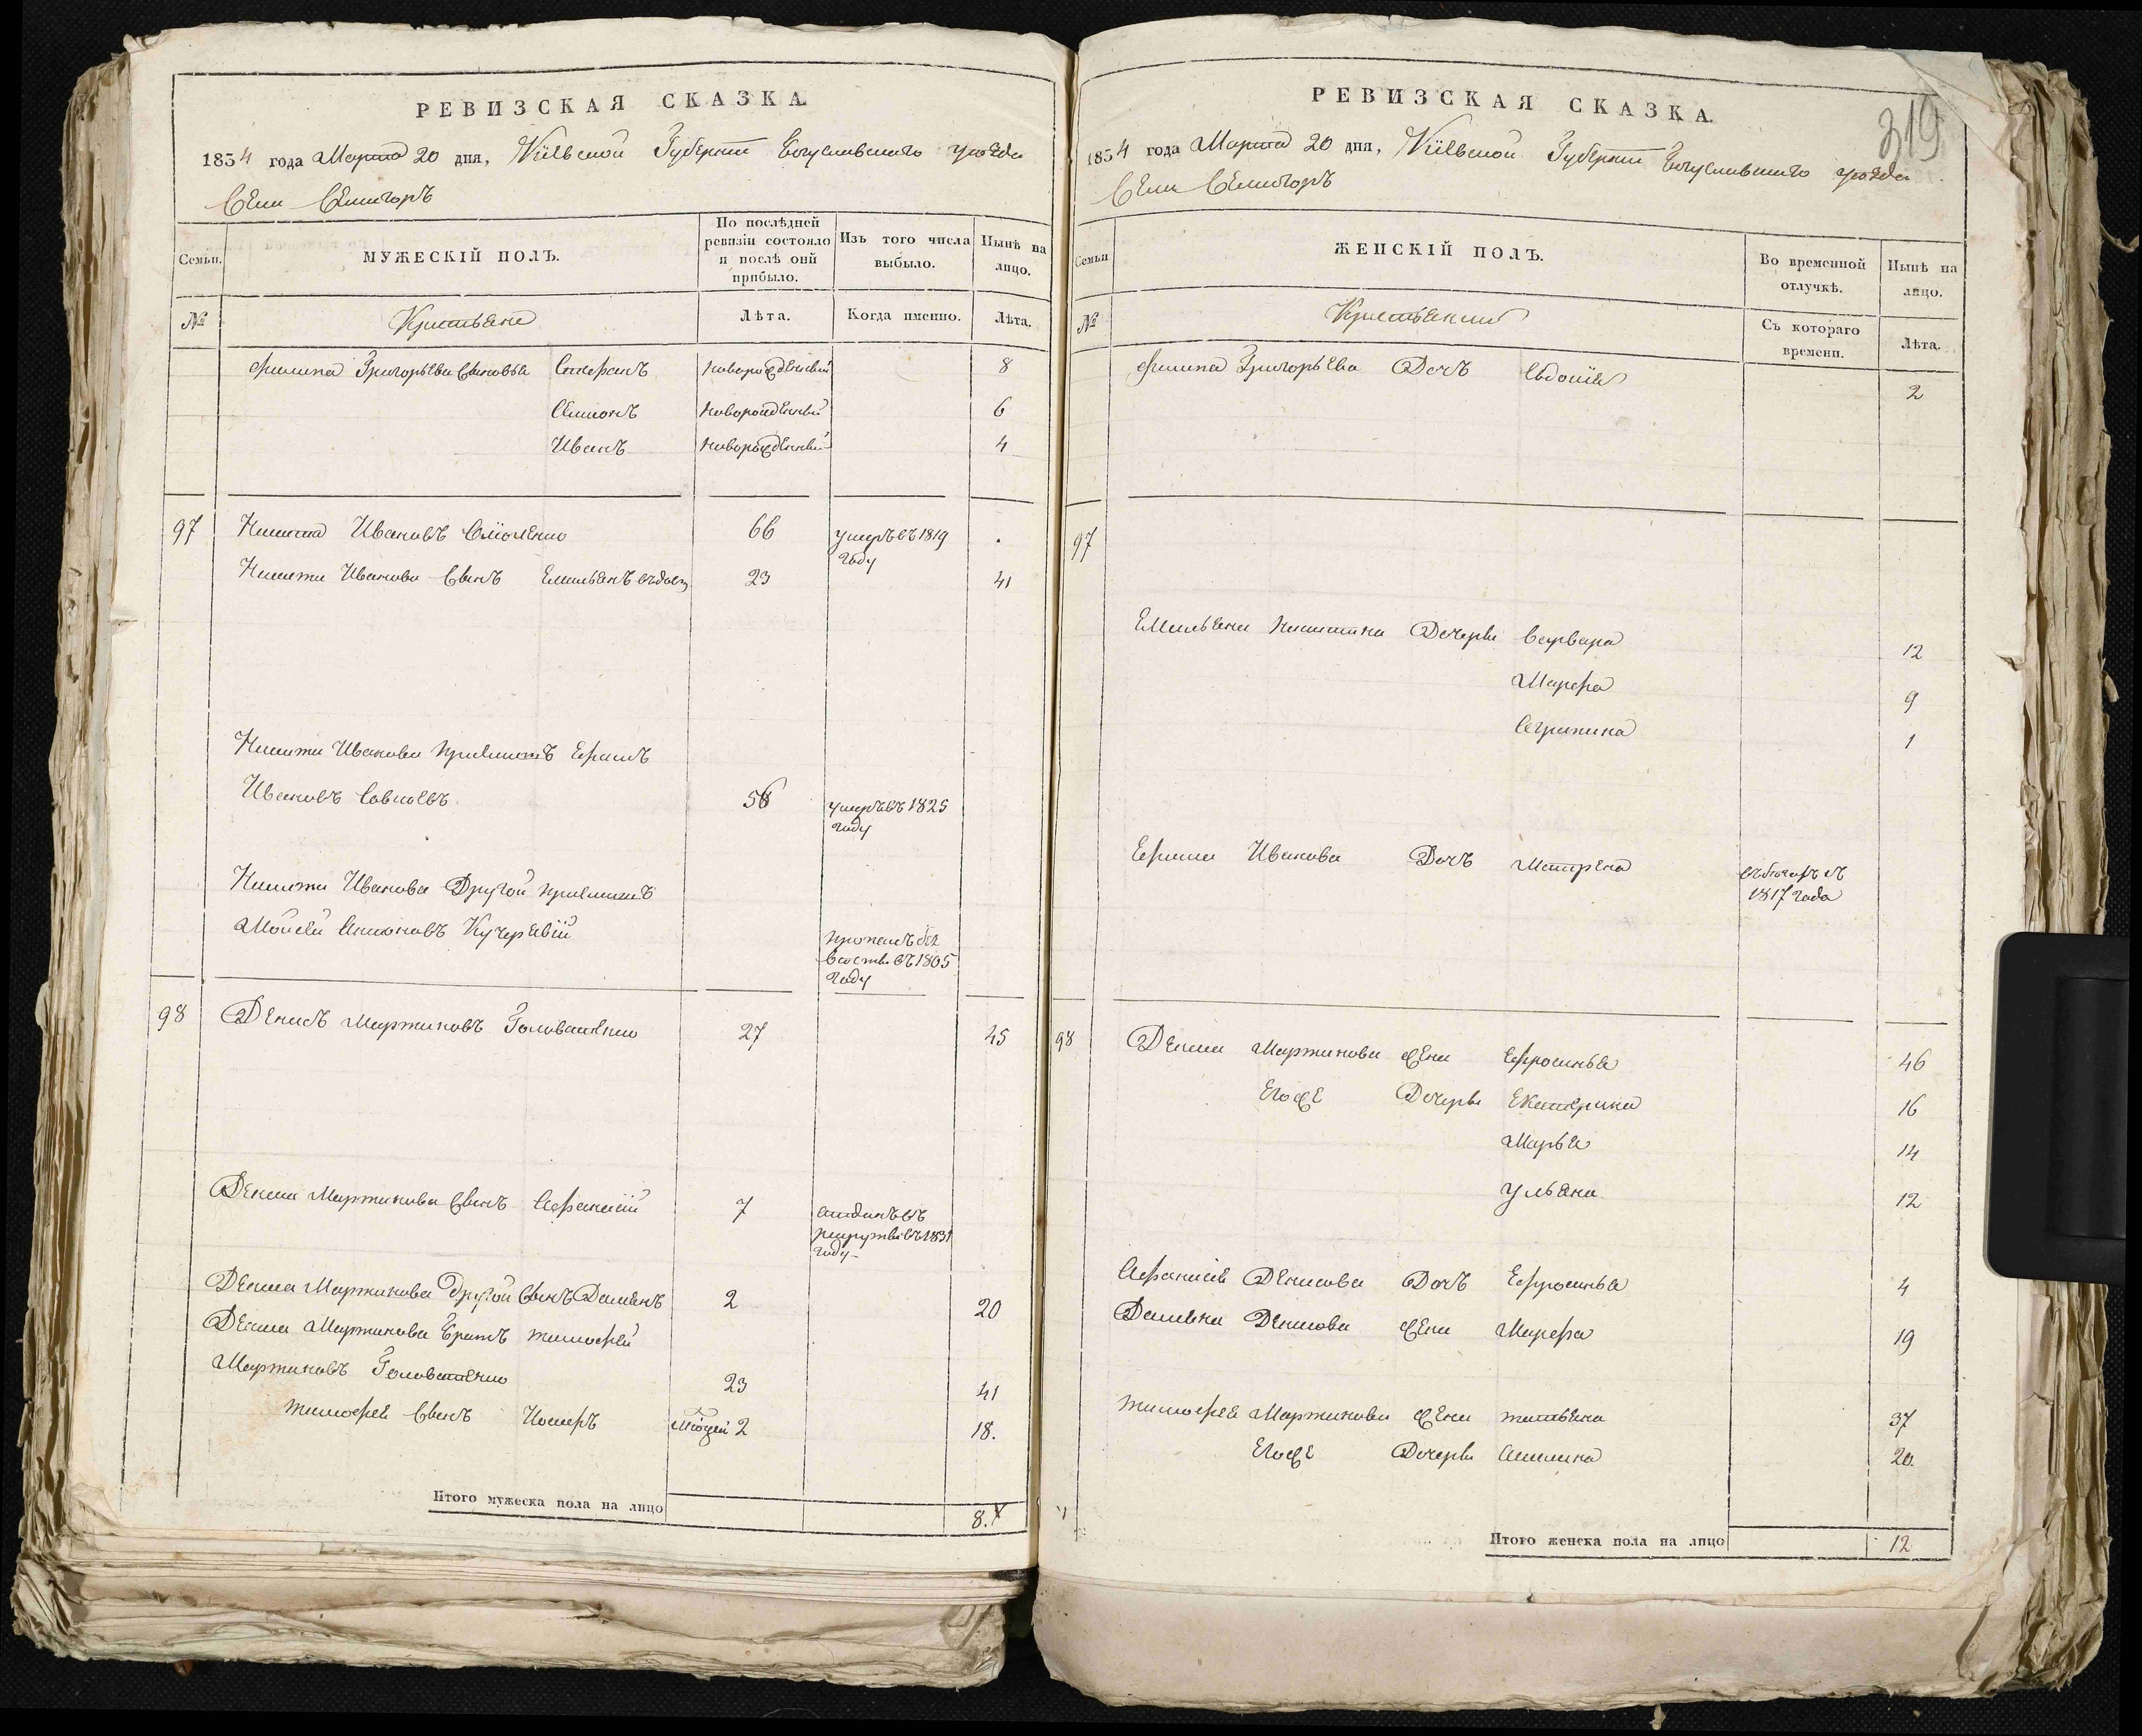 РЕВИЗСКАЯ СКАЗКА.
1834 года Марта 20 дня, Кіевской Губерніи Богуславскаго уѣзда
Села Селигоръ
Семьи. МУЖЕСКІЙ ПОЛЪ. По послѣдней ревизіи состояло и послѣ оной прибыло. Изъ того числа выбыло. Нынѣ на лицо.
№ Крестьяне Лѣта. Когда именно. Лѣта.
Филипа Григорьева Сыновья Стефанъ новорожденный 8
Семионъ новорожденный 6
Иванъ новорожденный 4
97 Никита Ивановъ 66 умеръ въ 1819 году
Никиты Иванова Сынъ Емильянъ вдовец 23 41
Никиты Иванова приймитъ Ефимъ
Ивановъ 56 умеръ въ 1825 году
Никиты Иванова Другой приймитъ
Мойсей Кучерявій пропалъ без вѣсти въ 1805 году
98 Денисъ Мартиновъ Головатенко 27 45
Дениса Мартинова Сынъ Афанасій 7 отданъ въ рекруты въ 1831 году
Дениса Мартинова Другой Сынъ Дамянъ 2 20
Дениса Мартинова Братъ Тимофей
Мартиновъ Головатенко 23 41
Тимофея Сынъ Иосифъ 2 18.
Итого мужеска пола на лицо 8.
РЕВИЗСКАЯ СКАЗКА.
319
1834 года Марта 20 дня, Кіевской Губерніи Богуславскаго уѣзда
Села Селигоръ
Семьи ЖЕНСКІЙ ПОЛЪ. Во временной отлучкѣ. Нынѣ на лицо.
№ Крестьянки Съ котораго времени. Лѣта.
Филипа Григорьева Дочъ Евдокія 2
97
Емильяна Никитина Дочери Варвара 12
Марфа 9
Агрипина 1
Ефима Иванова Дочъ Матрена 1817 года
98 Дениса Мартинова жена Ефросинья 46
Его же Дочери Екатерина 16
Марья 14
Ульяна 12
Афанасія Денисова Дочъ Ефросинья 4
Дамяна Денисова жена Марфа 19
Тимофея Мартинова жена Татьяна 37
Его же Дочери Акилина 20.
Итого женска пола на лицо 12